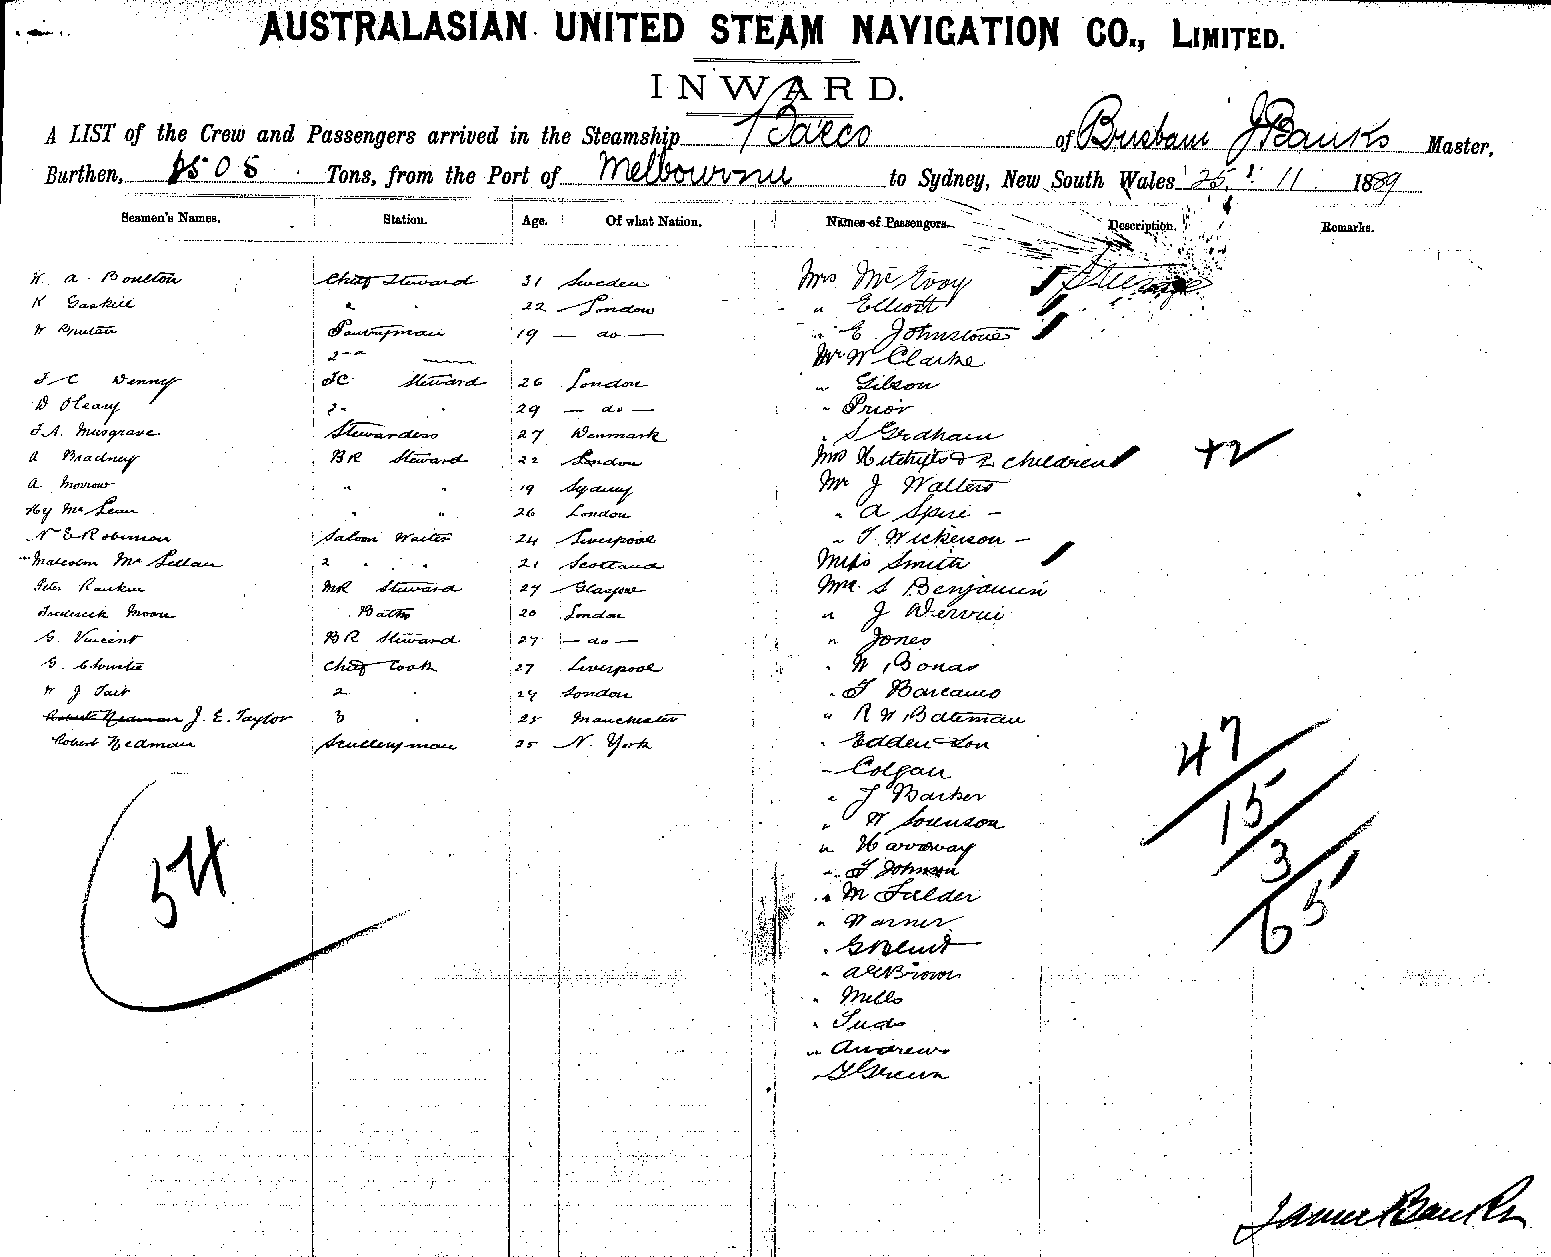 AUSTRALASIAN UNITED STEAM NAVIGATION CO., LIMITED.
INWARD.
A LIST of the Crew and Passengers arrived in the Steamship Barcoo of Brisbane J Banks Master,
Burthen, 1505 Tons, from the Port of Melbourne to Sydney, New South Wales 25 11 1889
Seamen's Names. Station. Age. Of what Nation. Names of Passengers. Description. Remarks.
W. A. Boulton Chief Steward 31 Sweden Mrs McEvoy Steerage
K Gaskell " " 22 London " Elliott
W Pantryman 19 — do — " E Johnstone
2nd Mr W Clarke
J C Denny FC Steward 26 London " Gibson
D OLeary 2 " 29 — do — " Prior
J. A. Musgrave Stewardess 27 Denmark " S Graham
A Bradney BR Steward 22 London Mrs & 2 children +2
A Morrow " " 19 Sydney Mr J Walters
Hy McLean " " 26 London " A Spire —
N E Robinson Saloon Waiter 24 Liverpool " T Wickerson —
Malcolm McLellan 2 " " 21 Scotland Miss Smith
Peter Rankin MR Steward 24 Glasgow Mr S Benjamin
Frederick Moon Baths 20 London " J
G. Vincent BR Steward 27 — do — " Jones
G. Christie Chief Cook 27 Liverpool " W Bonar
W J Tait 2 " 24 London " T
Robert Nedman J. E. Taylor 3 " 25 Manchester " R W Bateman
Robert Nedman Sculleryman 25 N. York " Edden Son
" Colgan
" J Barker
" W Sorenson
" Harraway
" T Johnson
" M Fulder
" Warner
" G Blunt
" A E Brown
" Mills
"
" Andrews
" Green
54
47
15
3
65
James Banks